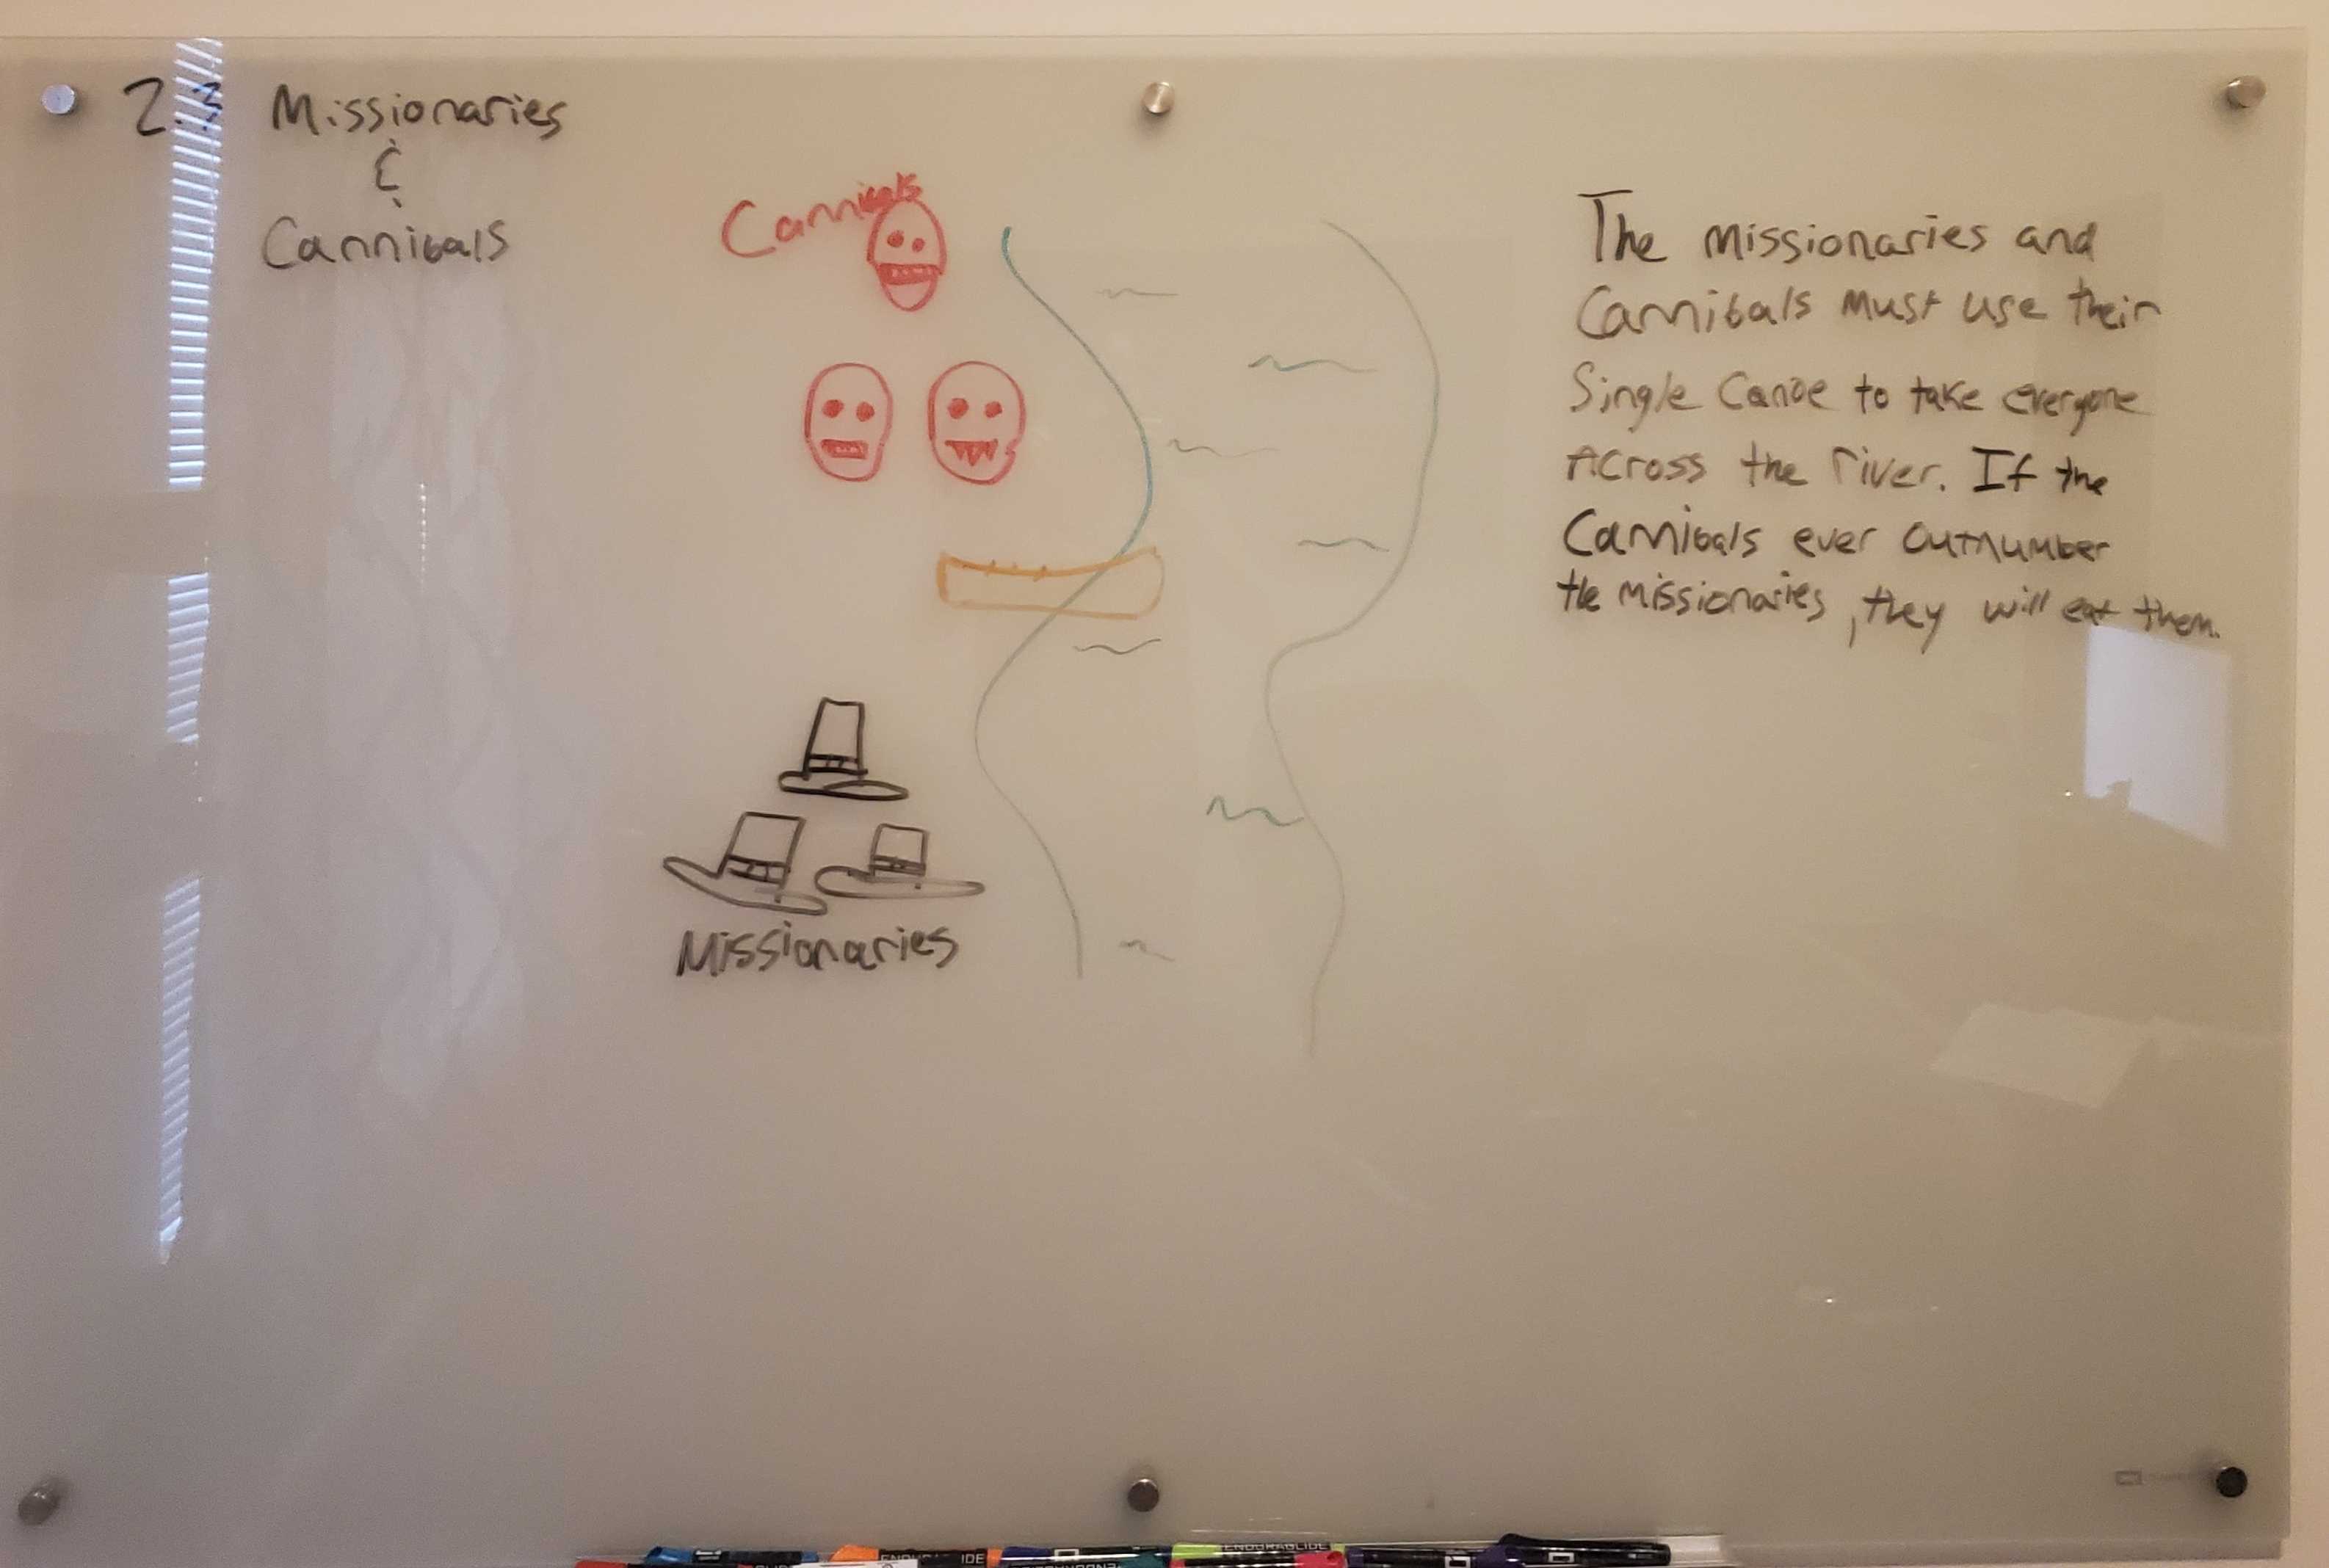 2.3 Missionaries
&
Cannibals
Cannibals
Missionaries
The Missionaries and
Cannibals Must use their
Single Canoe to take everyone
Across the river. If the
Cannibals ever outnumber
the Missionaries, they will eat them.
ENDURAGLIDE